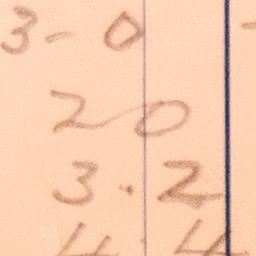 3 - 0
20
3.2
4 4